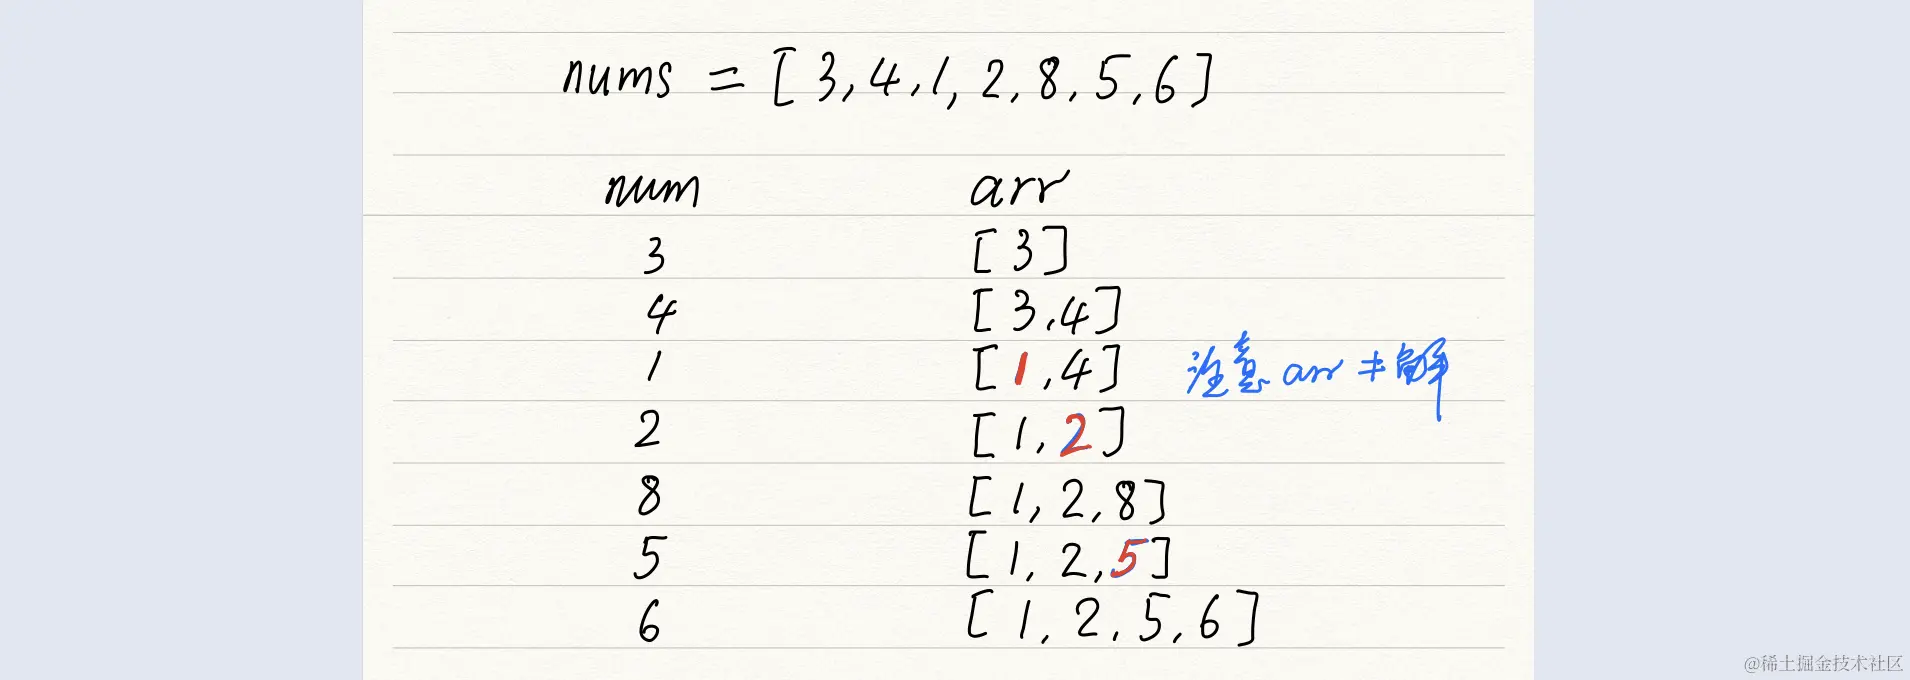 nums = [3,4,1,2,8,5,6]
num arr
3 [3]
4 [3,4]
1 [1,4] 注意 arr ≠ 解
2 [1,2]
8 [1,2,8]
5 [1,2,5]
6 [1,2,5,6]
@稀土掘金技术社区